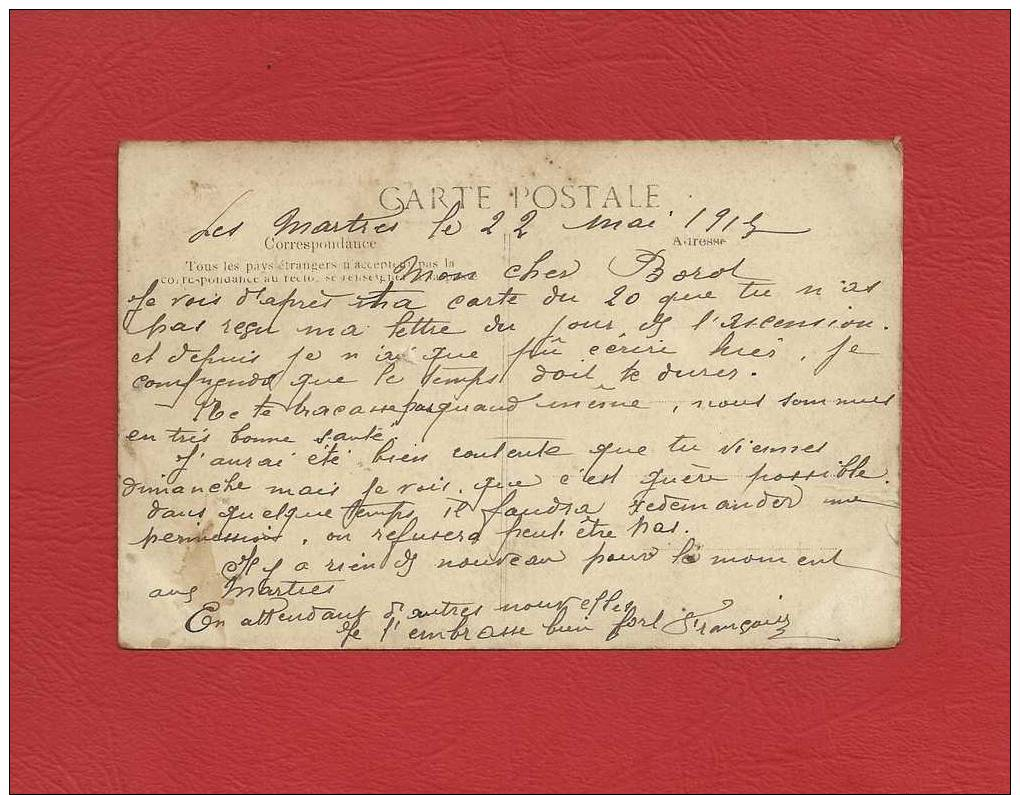 CARTE POSTALE
Les Martres le 22 mai 1915
Correspondance
Adresse
Tous les pays étrangers n'acceptent pas la
correspondance au recto, se renseigner
Mon cher Borot
Je vois d'après ta carte du 20 que tu n'as
pas reçu ma lettre du jour de l'Ascension.
et depuis je n'ai que pû écrire hier, je
comprends que le temps doit te durer.
Ne te tracasse pas quand même, nous sommes
en très bonne santé
J'aurai été bien contente que tu viennes
dimanche mais je vois que c'est guère possible.
dans quelque temps il faudra redemander une
permission, on refusera peut être pas.
Il y a rien de nouveau pour le moment
aux Martres
En attendant d'autres nouvelles
Je t'embrasse bien fort François